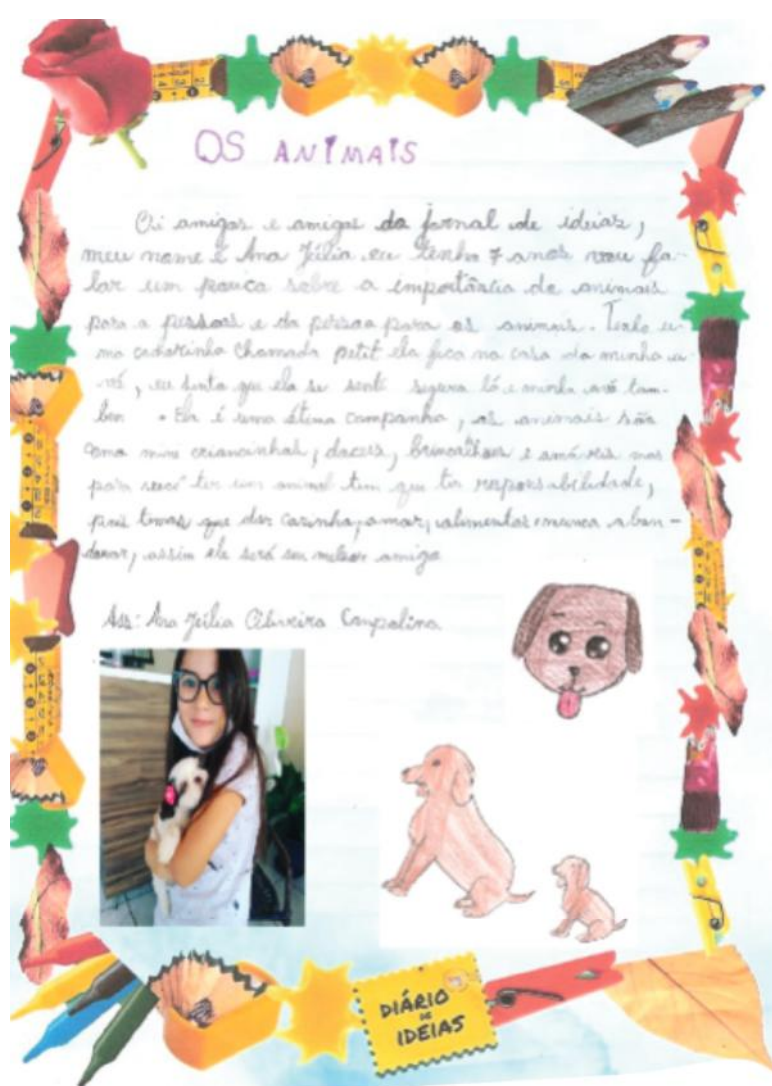 OS ANIMAIS
Oi amigos e amigas do jornal de ideias,
meu nome é Ana Júlia eu tenho 7 anos vou fa-
lar um pouco sobre a importância de animais
para a pessoas e da pessoa para os animais. Tenho u-
ma cachorrinha chamada petit ela fica na casa da minha a-
vó, eu sinto que ela se senti segura lá e minha avó tam-
ben . Ela é uma ótima companha, os animais são
como mini criancinhas, doceis, brincalhões e amáveis mas
para você ter um animal tem que ter responsabilidade,
pois temos que dar carinho, amor, alimentos e nunca aban-
donar, assim ele será seu melhor amigo
Ass: Ana Júlia Oliveira Campolina
DIÁRIO
DE
IDEIAS